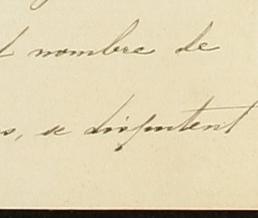 nombre de
se disputent